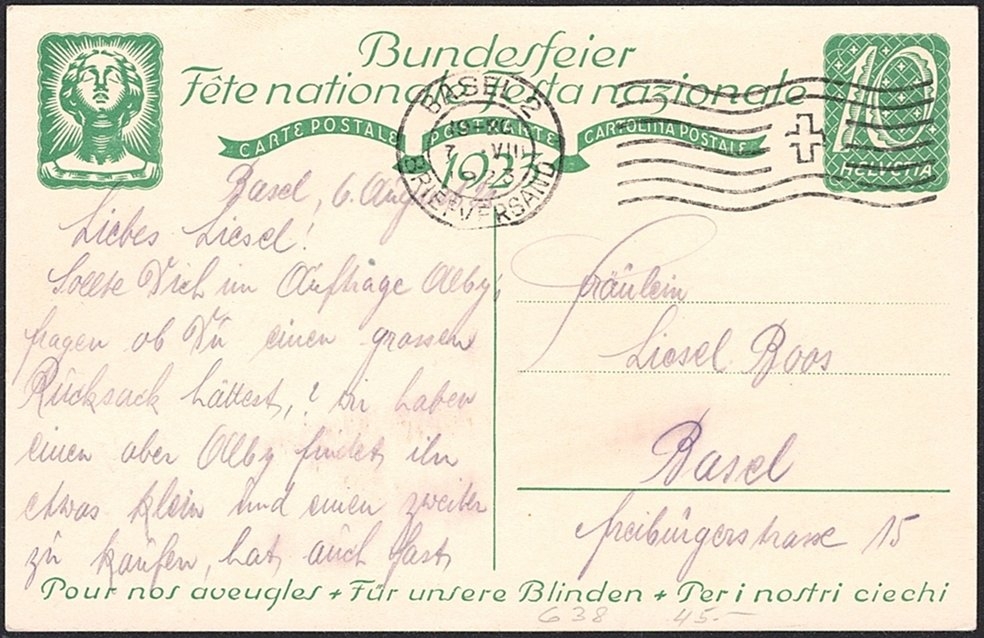 Bundesfeier
Fête nationale Festa nazionale
CARTE POSTALE POSTKARTE CARTOLINA POSTALE
1923
10
HELVETIA
BASEL 2
19-20
7. VIII
1923
BRIEFVERSAND
Basel, 6. Aug. 23
Liebes Liesel!
Sollte Dich im Auftrage Alby,
fragen ob Du einen grossen
Rücksack hättest,? wir haben
einen aber Alby findet ihn
etwas klein und einen zweiten
zu kaufen, hat auch fast
Fräulein
Liesel Boos
Basel
Freiburgerstrasse 15
Pour nos aveugles + Für unsere Blinden + Per i nostri ciechi
638 45.-